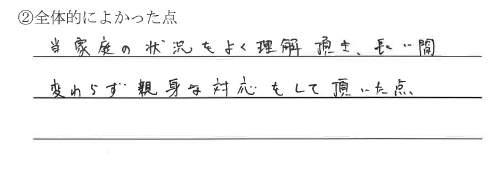 ②全体的によかった点
当家庭の状況をよく理解頂き、長い間
変わらず親身な対応をして頂いた点、